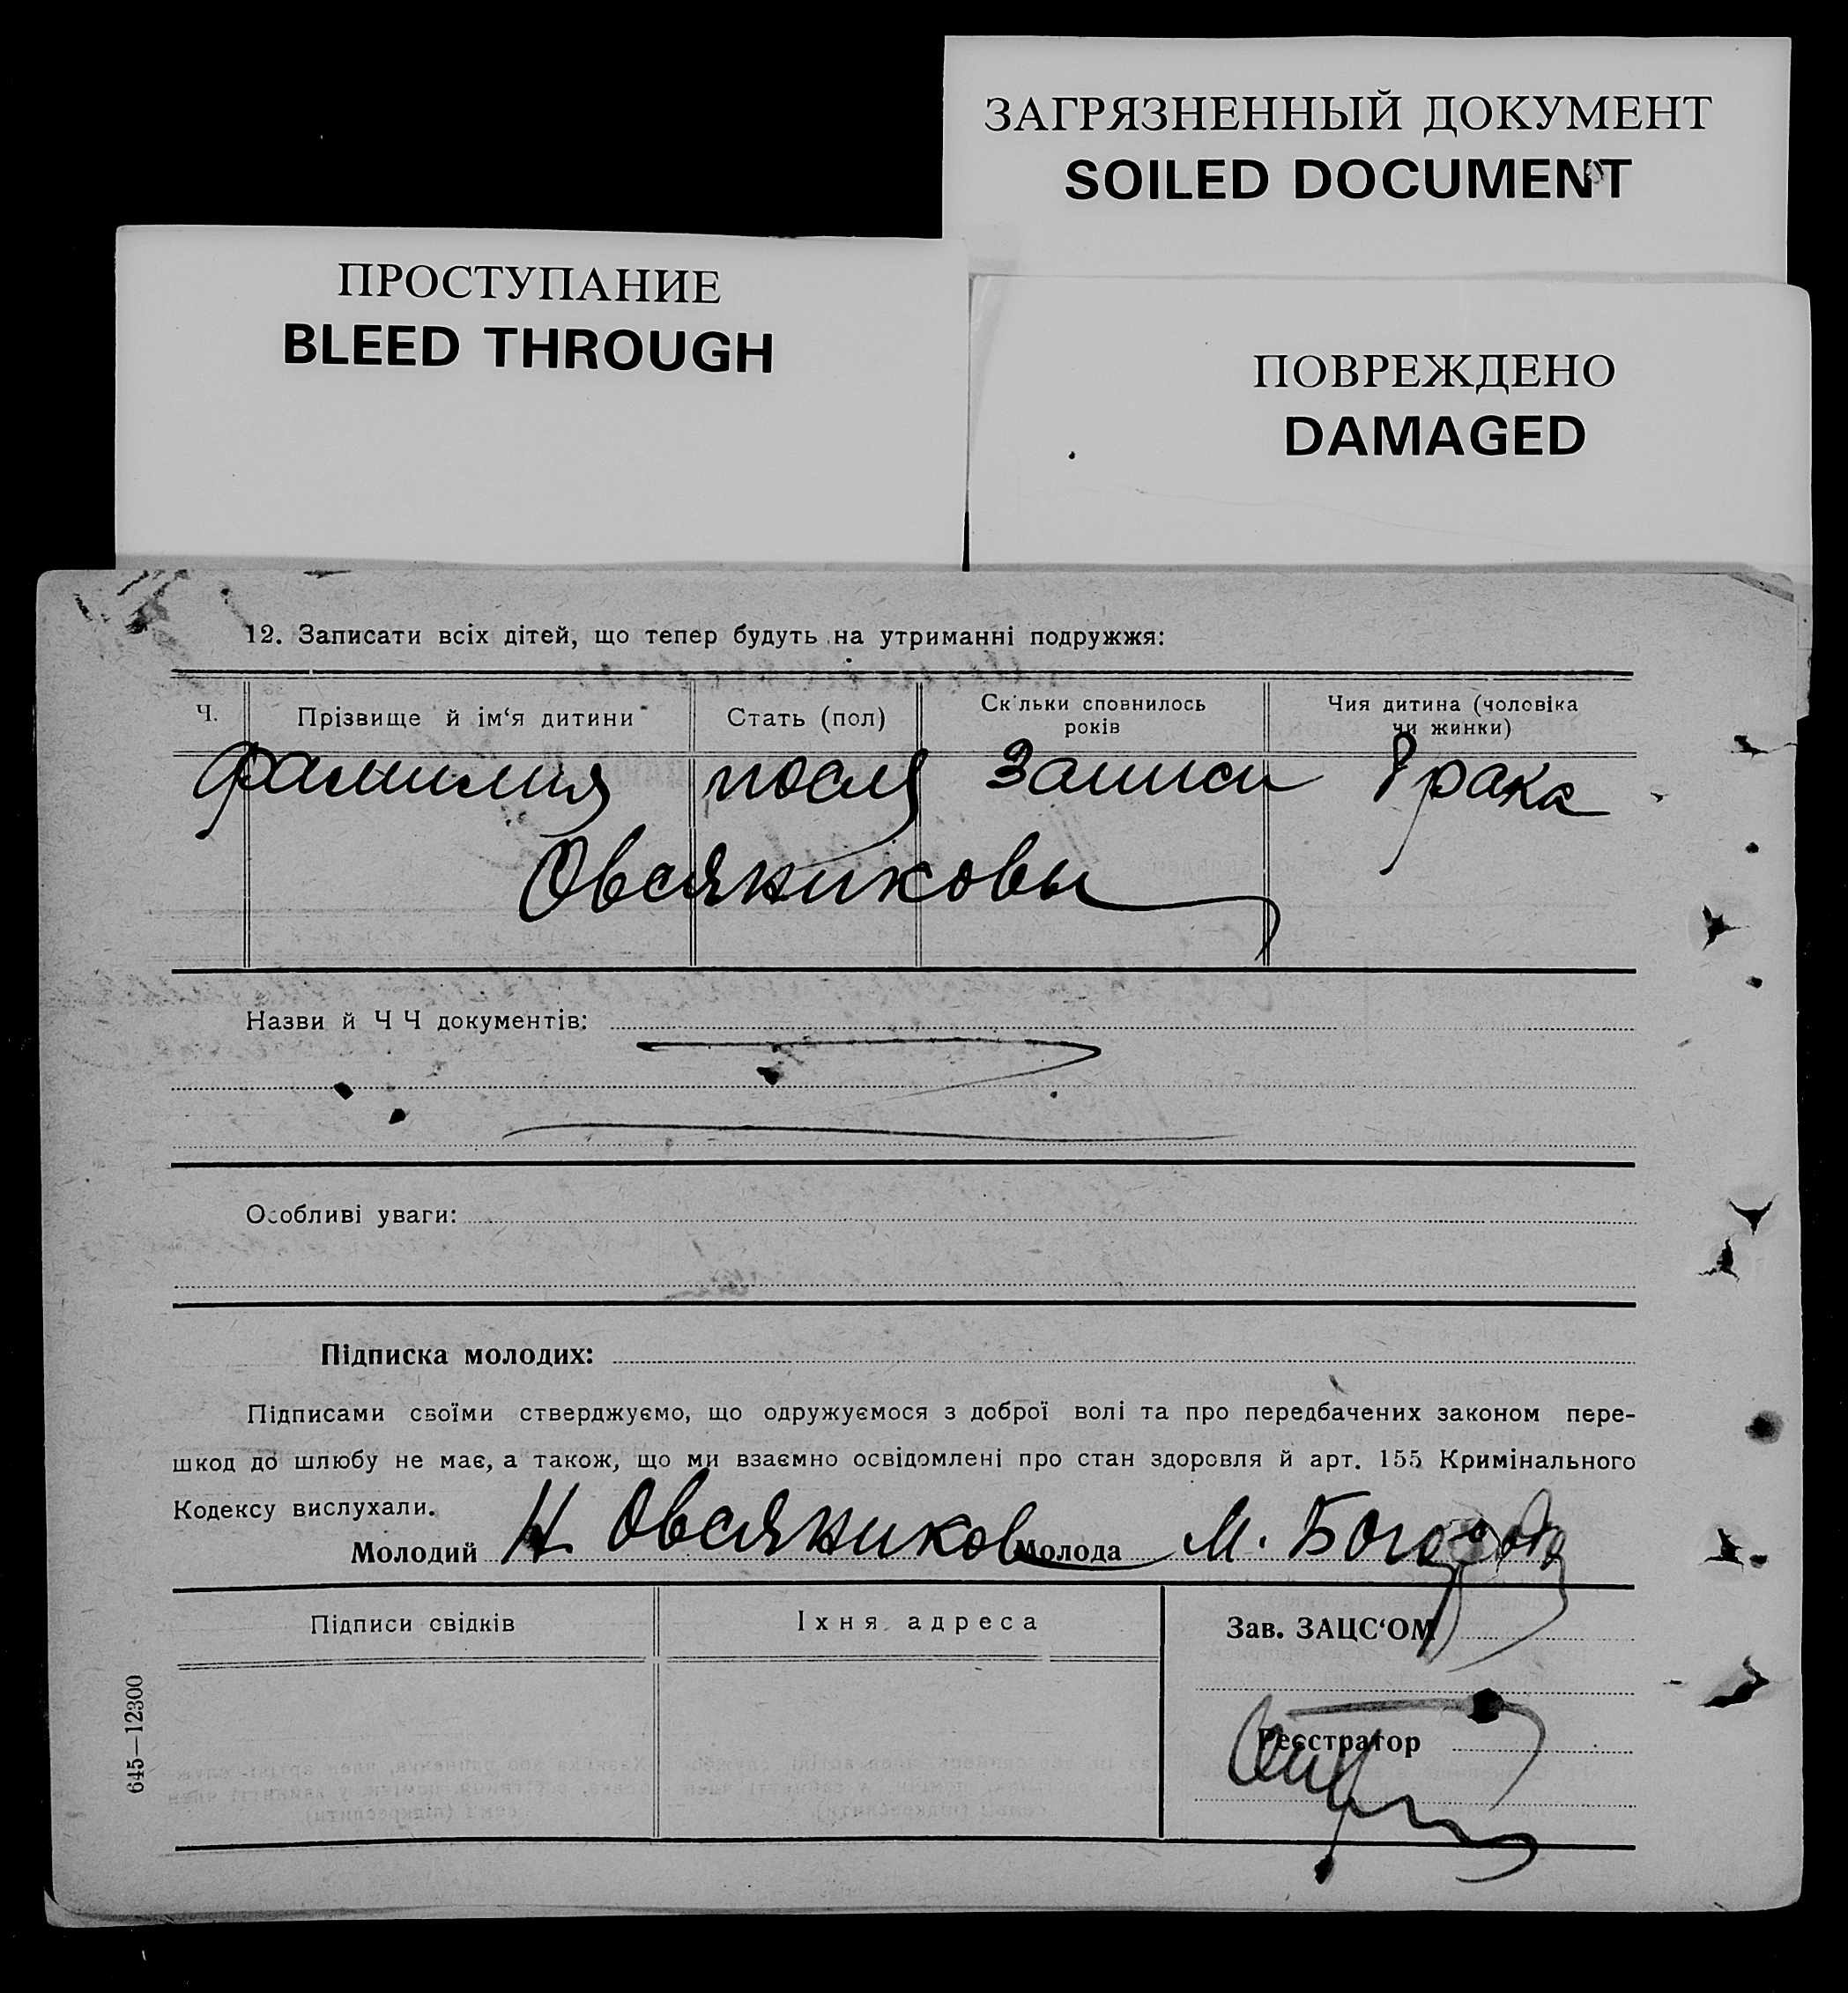 ЗАГРЯЗНЕННЫЙ ДОКУМЕНТ
SOILED DOCUMENT
ПРОСТУПАНИЕ
BLEED THROUGH
ПОВРЕЖДЕНО
DAMAGED
12. Записати всіх дітей, що тепер будуть на утриманні подружжя:
Ч.
Прізвище й ім‘я дитини
Стать (пол)
Скільки сповнилось
років
Чия дитина (чоловіка
чи жинки)
фамилия после записи брака
Овсяниковы
Назви й Ч Ч документів:
Особливі уваги:
Підписка молодих:
Підписами своїми стверджуємо, що одружуємося з доброї волі та про передбачених законом пере-
шкод до шлюбу не має, а також, що ми взаємно освідомлені про стан здоровля й арт. 155 Кримінального
Кодексу вислухали.
Молодий Н Овсяников Молода М.
Підписи свідків
Іхня адреса
Зав. ЗАЦС‘ОМ
Реєстратор
645—12300